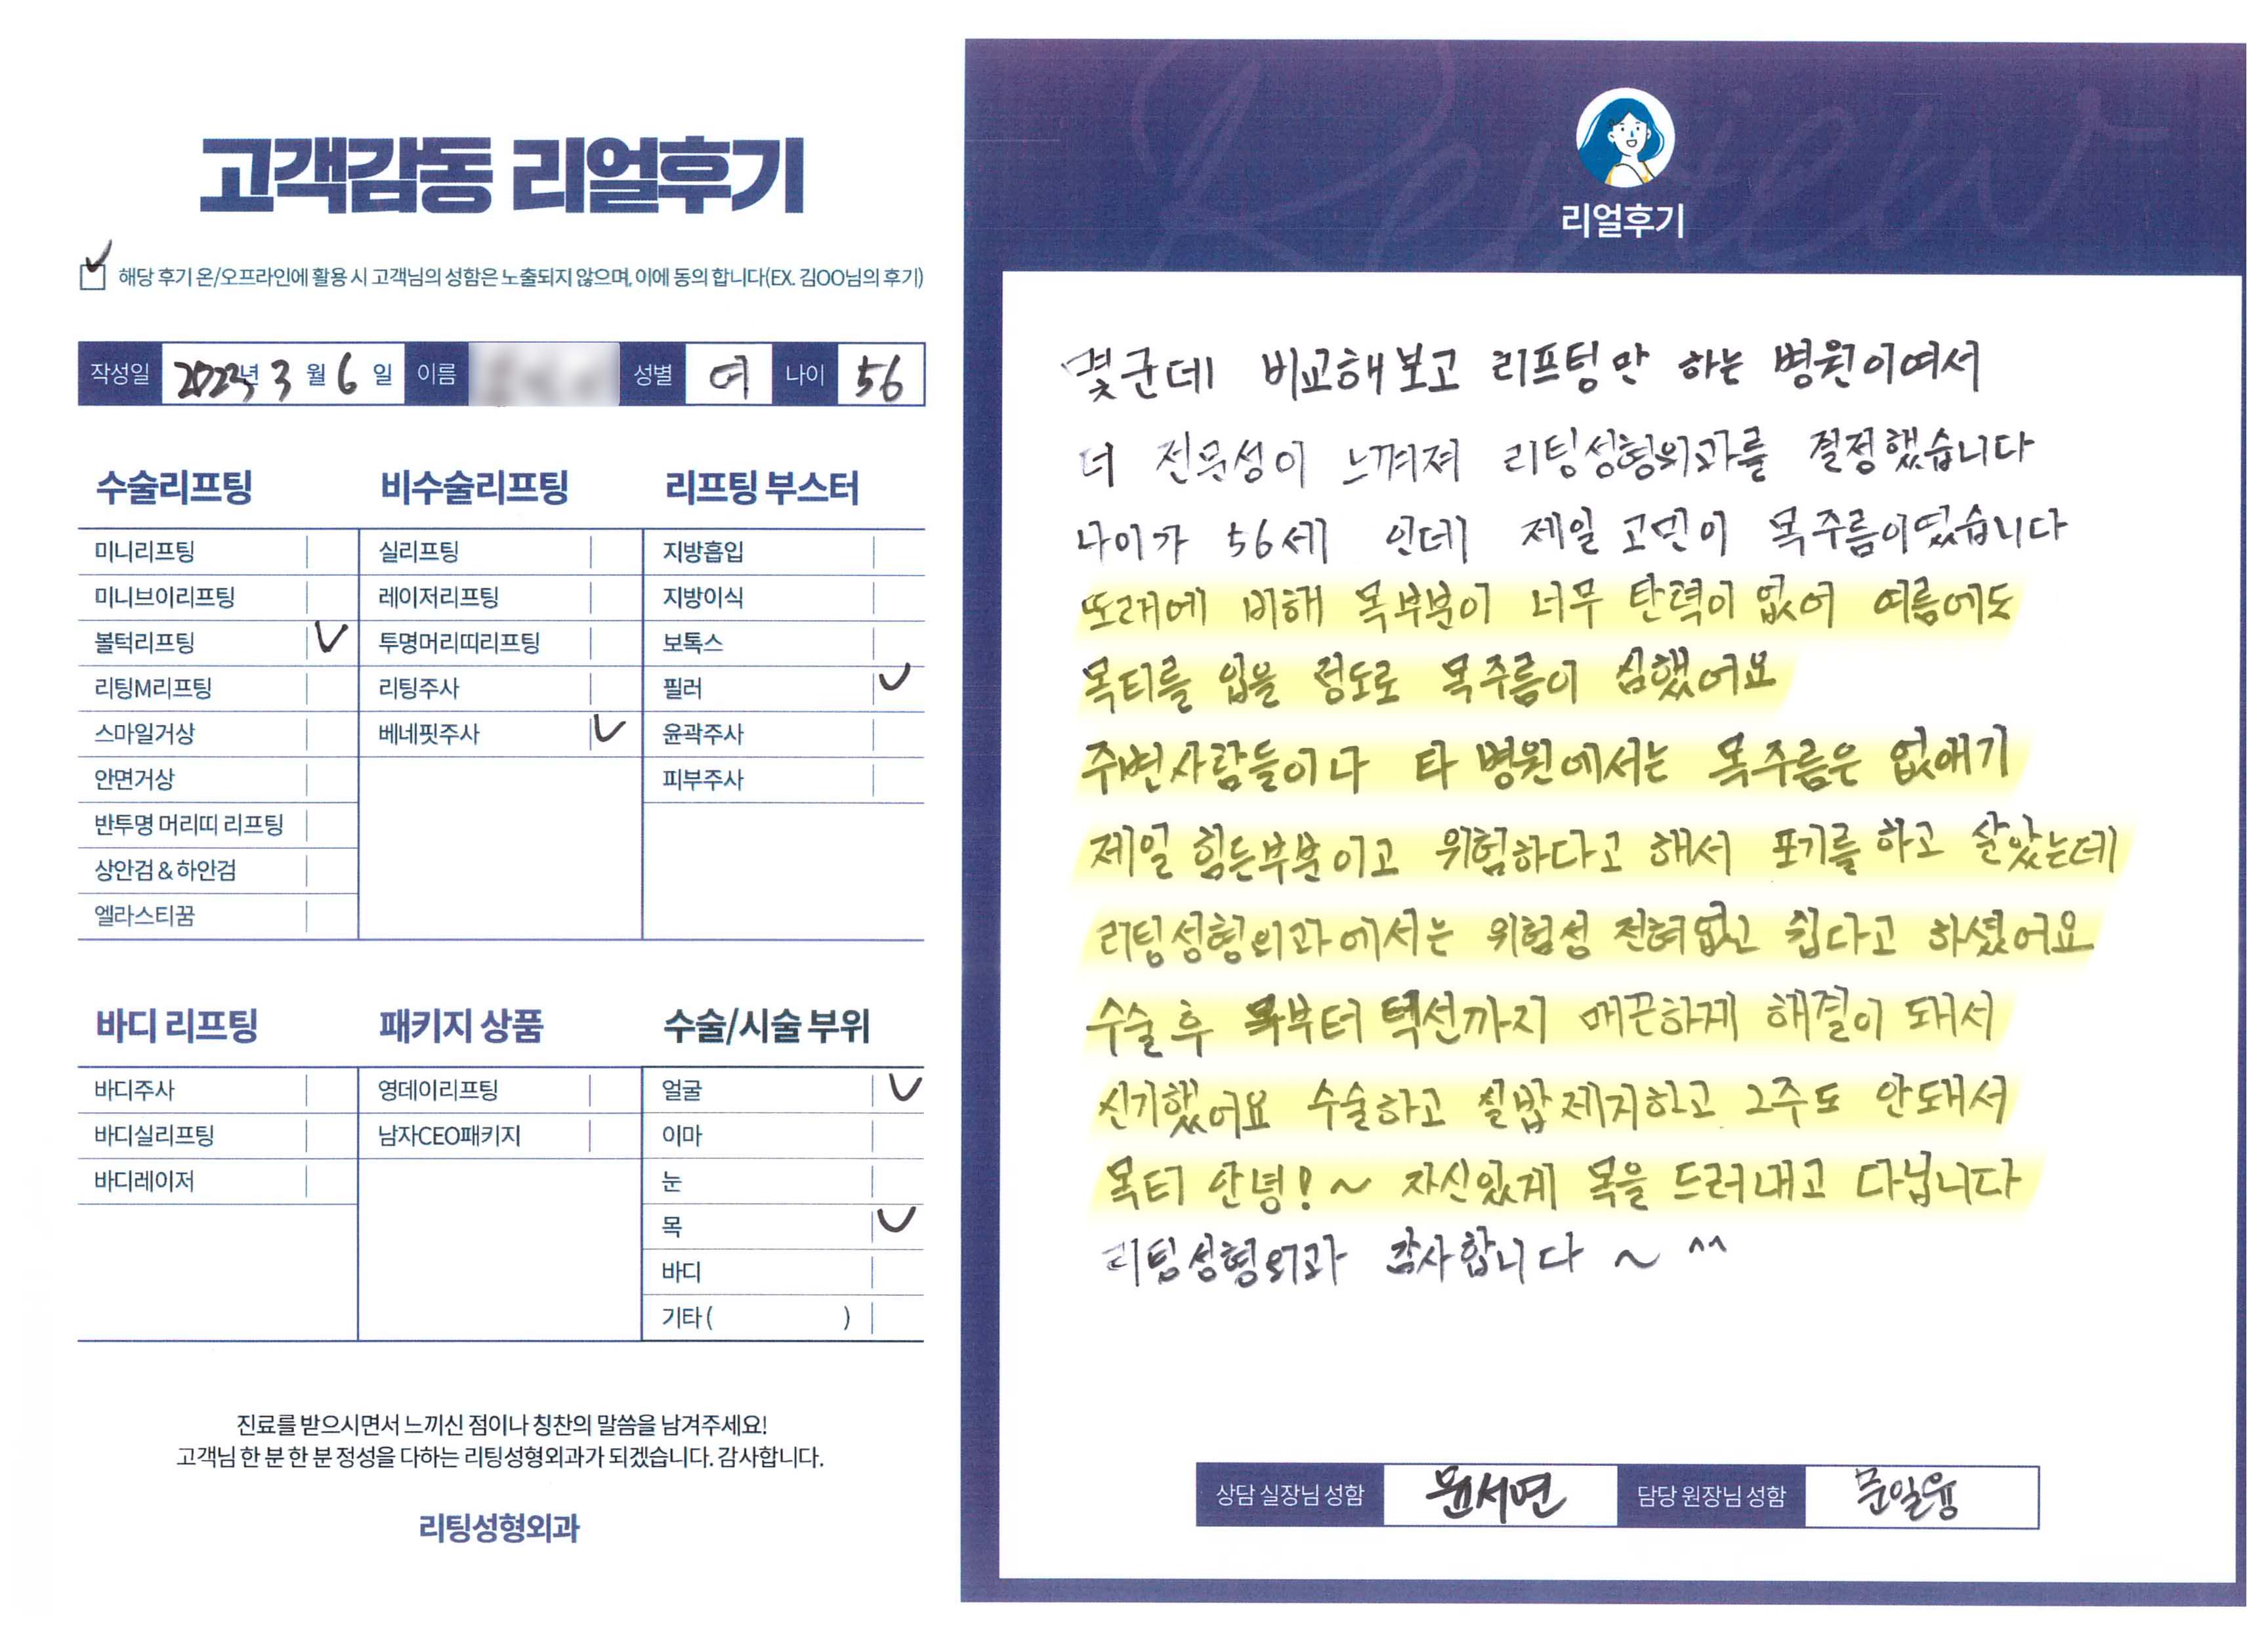 고객감동 리얼후기
해당 후기 온/오프라인에 활용 시 고객님의 성함은 노출되지 않으며, 이에 동의 합니다(EX. 김OO님의 후기)
작성일 2023년 3월 6일 이름 성별 여 나이 56
수술리프팅
미니리프팅
미니브이리프팅
볼턱리프팅
리팅M리프팅
스마일거상
안면거상
반투명 머리띠 리프팅
상안검 & 하안검
엘라스티꿈
비수술리프팅
실리프팅
레이저리프팅
투명머리띠리프팅
리팅주사
베네핏주사
리프팅 부스터
지방흡입
지방이식
보톡스
필러
윤곽주사
피부주사
바디 리프팅
바디주사
바디실리프팅
바디레이저
패키지 상품
영데이리프팅
남자CEO패키지
수술/시술 부위
얼굴
이마
눈
목
바디
기타 ( )
진료를 받으시면서 느끼신 점이나 칭찬의 말씀을 남겨주세요!
고객님 한 분 한 분 정성을 다하는 리팅성형외과가 되겠습니다. 감사합니다.
리팅성형외과
Review
리얼후기
몇군데 비교해보고 리프팅만 하는 병원이여서
더 전문성이 느껴져 리팅성형외과를 결정했습니다
나이가 56세 인데 제일 고민이 목주름이였습니다
또래에 비해 목부분이 너무 탄력이 없어 여름에도
목티를 입을 정도로 목주름이 심했어요
주변사람들이나 타 병원에서는 목주름은 없애기
제일 힘든부분이고 위험하다고 해서 포기를 하고 살았는데
리팅성형외과에서는 위험성 전혀없고 쉽다고 하셨어요
수술 후 목부터 턱선까지 매끈하게 해결이 돼서
신기했어요 수술하고 실밥제거하고 2주도 안돼서
목티 안녕! ~ 자신있게 목을 드러내고 다닙니다
리팅성형외과 감사합니다 ~ ^^
상담 실장님 성함 윤서연 담당 원장님 성함 문일웅